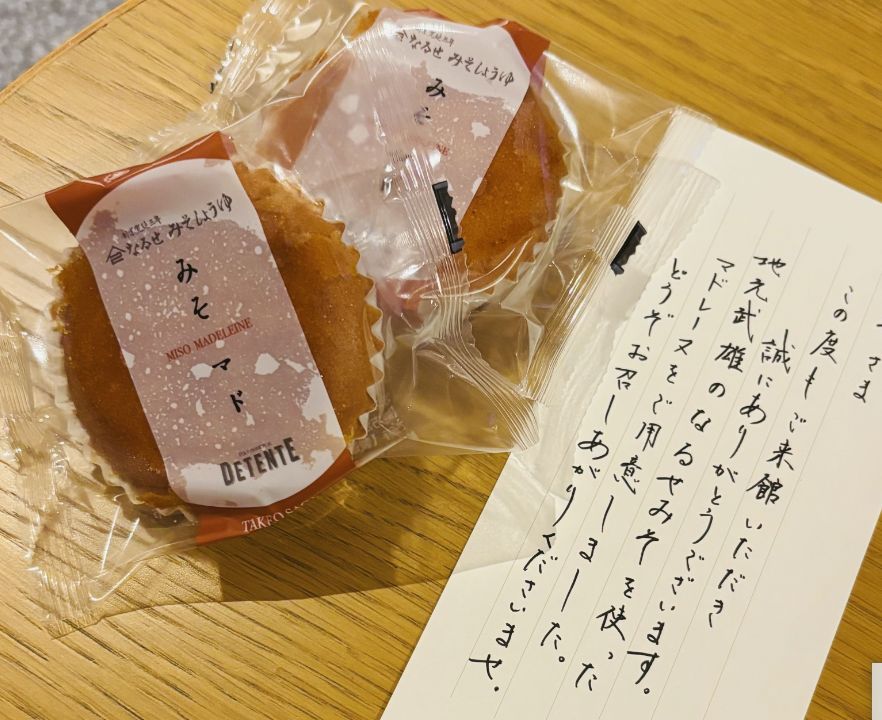 なるせ みそしょうゆ
みそ
マド
MISO MADELEINE
DETENTE
TAKEO SA
なるせ みそしょうゆ
み
さま
この度もご来館いただき
誠にありがとうございます。
地元武雄のなるせみそを使った
マドレーヌをご用意しました。
どうぞお召しあがりくださいませ。